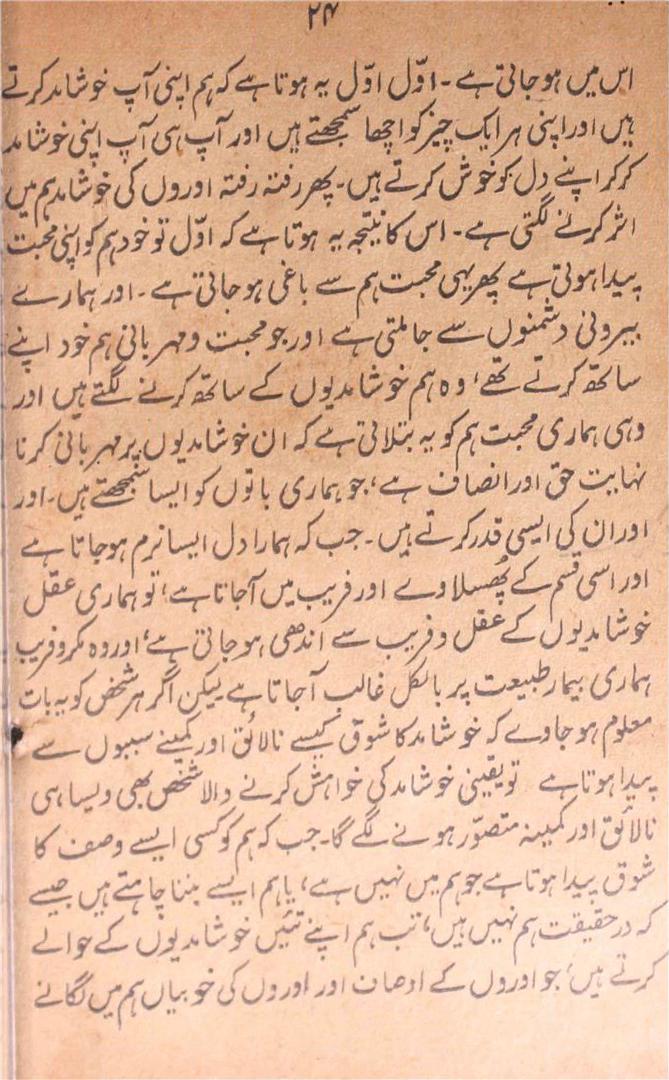 ۲۴
اس میں ہو جاتی ہے۔ اوّل اوّل یہ ہوتا ہے کہ ہم اپنی آپ خوشامد کرتے
ہیں اور اپنی ہر ایک چیز کو اچھا سمجھتے ہیں اور آپ ہی آپ اپنی خوشامد
کر کر اپنے دل کو خوش کرتے ہیں۔ پھر رفتہ رفتہ اوروں کی خوشامد ہم میں
اثر کرنے لگتی ہے۔ اس کا نتیجہ یہ ہوتا ہے کہ اوّل تو خود ہم کو اپنی محبت
پیدا ہوتی ہے پھر یہی محبت ہم سے باغی ہو جاتی ہے۔ اور ہمارے
بیرونی دشمنوں سے جا ملتی ہے اور جو محبت و مہربانی ہم خود اپنے
ساتھ کرتے تھے، وہ ہم خوشامدیوں کے ساتھ کرنے لگتے ہیں اور
وہی ہماری محبت ہم کو یہ بتلاتی ہے کہ ان خوشامدیوں پر مہربانی کرنا
نہایت حق اور انصاف ہے، جو ہماری باتوں کو ایسا سمجھتے ہیں۔ اور
اور ان کی ایسی قدر کرتے ہیں۔ جب کہ ہمارا دل ایسا نرم ہو جاتا ہے
اور اسی قسم کے پھُسلاوے اور فریب میں آ جاتا ہے، تو ہماری عقل
خوشامدیوں کے عقل و فریب سے اندھی ہو جاتی ہے، اور وہ مکر و فریب
ہماری بیمار طبیعت پر بالکل غالب آ جاتا ہے لیکن اگر ہر شخص کو یہ بات
معلوم ہو جاوے کہ خوشامد کا شوق کیسے نالائق اور کمینے سببوں سے
پیدا ہوتا ہے تو یقینی خوشامد کی خواہش کرنے والا شخص بھی ویسا ہی
نالائق اور کمینہ متصوّر ہونے لگے گا۔ جب کہ ہم کو کسی ایسے وصف کا
شوق پیدا ہوتا ہے جو ہم میں نہیں ہے، یا ہم ایسے بننا چاہتے ہیں جیسے
کہ درحقیقت ہم نہیں ہیں، تب ہم اپنے تئیں خوشامدیوں کے حوالے
کرتے ہیں، جو اوروں کے اوصاف اور اوروں کی خوبیاں ہم میں لگانے